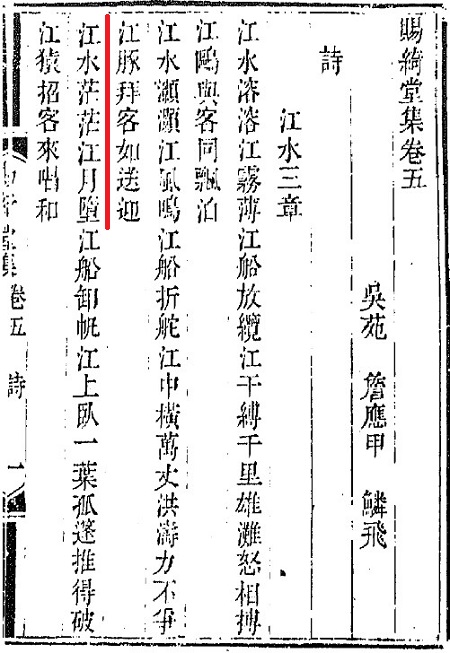 賜綺堂集卷五
吳苑 詹應甲 鱗飛
詩
江水三章
江水溶溶江霧薄江船放纜江干縛千里雄灘怒相搏
江鷗與客同飄泊
江水灝灝江風鳴江船折舵江中橫萬丈洪濤力不爭
江豚拜客如送迎
江水茫茫江月墮江船卸帆江上臥一葉孤篷推得破
江猿招客來唱和
堂集 卷五 詩 一